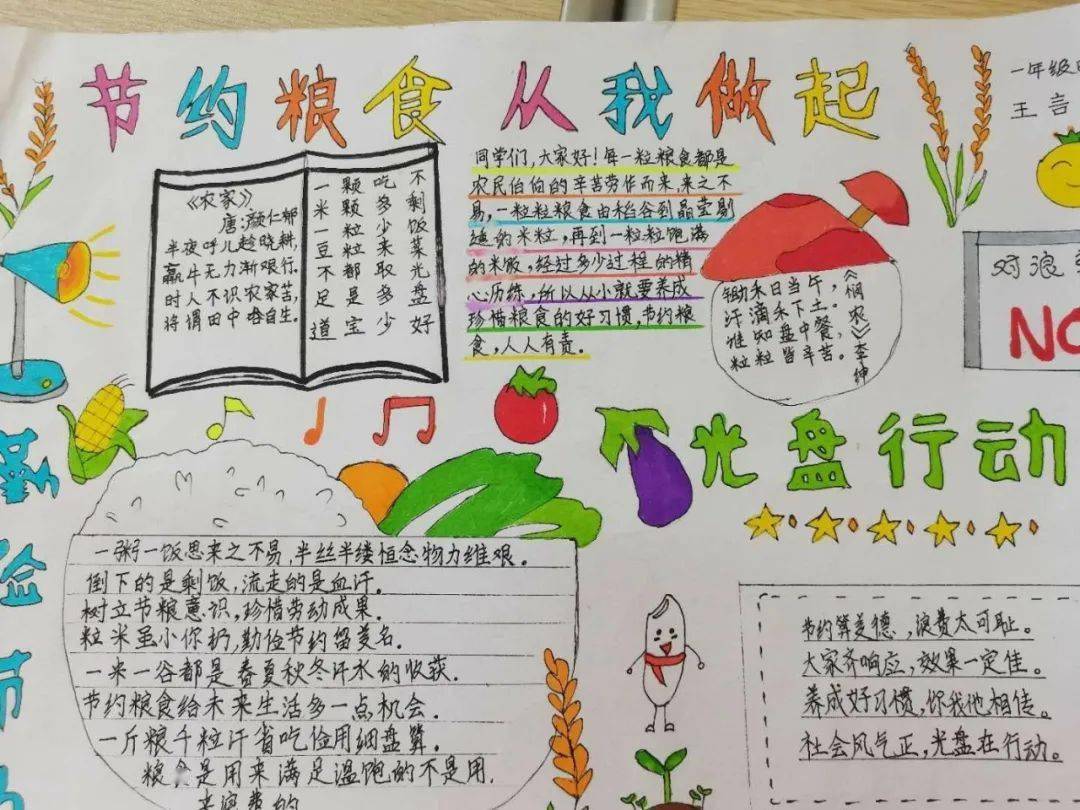 节约粮食 从我做起
一年级
王言
《农家》
唐:颜仁郁
半夜呼儿趁晓耕,
羸牛无力渐艰行.
时人不识农家苦,
将谓田中谷自生.
一米一豆不足道
颗颗粒粒都是宝
吃多少来取多少
不剩饭菜光盘好
同学们,大家好!每一粒粮食都是
农民伯伯的辛苦劳作而来,来之不
易,一粒粒粮食由稻谷到晶莹剔
透的米粒,再到一粒粒饱满
的米饭,经过多少过程的精
心历练,所以从小就要养成
珍惜粮食的好习惯,节约粮
食,人人有责.
《悯农》李绅
锄禾日当午,
汗滴禾下土。
谁知盘中餐,
粒粒皆辛苦。
对浪
NO
光盘行动
一粥一饭思来之不易,半丝半缕恒念物力维艰.
倒下的是剩饭,流走的是血汗.
树立节粮意识,珍惜劳动成果.
粒米虽小你扔,勤俭节约留美名.
一米一谷都是春夏秋冬汗水的收获.
节约粮食给未来生活多一点机会.
一斤粮千粒汗省吃俭用细盘算.
粮食是用来满足温饱的不是用.
来浪费的
节约算美德,浪费太可耻。
大家齐响应,效果一定佳。
养成好习惯,你我他相传。
社会风气正,光盘在行动。